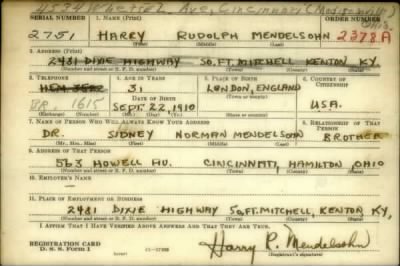 4534 Whetsel Ave, Cincinnati (Madisonville) Ohio
SERIAL NUMBER 1. NAME (Print) ORDER NUMBER
2751 HARRY RUDOLPH MENDELSOHN 2378.A
(First) (Middle) (Last)
2. ADDRESS (Print)
2481 DIXIE HIGHWAY SO.FT. MITCHELL KENTON KY
(Number and street or R. F. D. number) (Town) (County) (State)
3. TELEPHONE 4. AGE IN YEARS 5. PLACE OF BIRTH 6. COUNTRY OF CITIZENSHIP
31 LONDON, ENGLAND
DATE OF BIRTH (Town or county)
BR. 1615 SEPT. 22, 1910 U.S.A.
(Exchange) (Number) (Mo.) (Day) (Yr.) (State or country)
7. NAME OF PERSON WHO WILL ALWAYS KNOW YOUR ADDRESS 8. RELATIONSHIP OF THAT PERSON
DR. SIDNEY NORMAN MENDELSOHN BROTHER
(Mr., Mrs., Miss) (First) (Middle) (Last)
9. ADDRESS OF THAT PERSON
563 HOWELL AV. CINCINNATI, HAMILTON, OHIO
(Number and street or R. F. D. number) (Town) (County) (State)
10. EMPLOYER'S NAME
11. PLACE OF EMPLOYMENT OR BUSINESS
2481 DIXIE HIGHWAY SO.FT. MITCHELL, KENTON KY,
(Number and street or R. F. D. number) (Town) (County) (State)
I AFFIRM THAT I HAVE VERIFIED ABOVE ANSWERS AND THAT THEY ARE TRUE.
REGISTRATION CARD
D. S. S. Form 1
Harry R. Mendelsohn
(Registrant's signature)